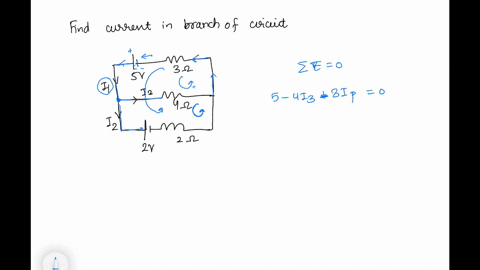 Find current in branch of circuit
+ -
5V
3Ω
I1
I3
4Ω
I2
2V
2Ω
ΣE=0
5-4I3-3I1=0